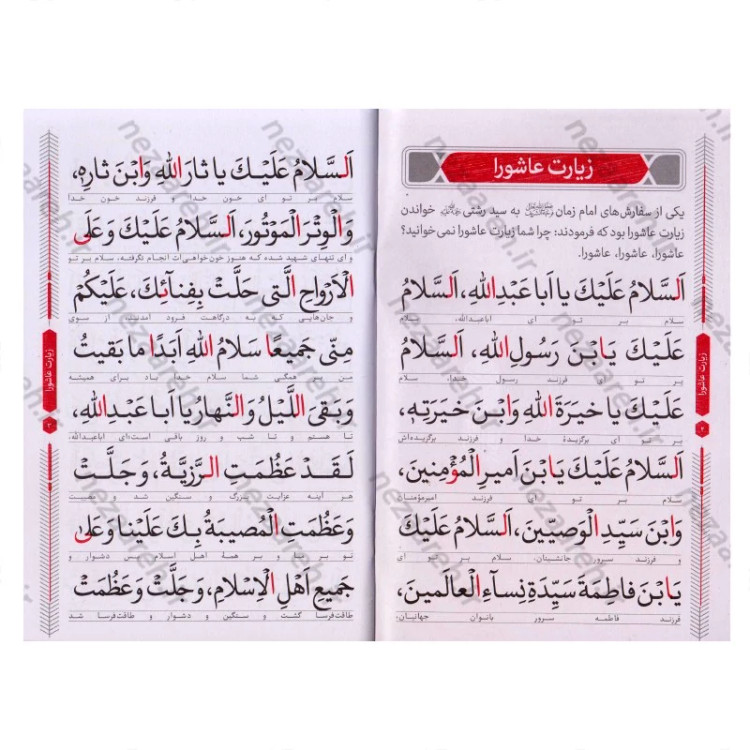 زیارت عاشورا
یکی از سفارش‌های امام زمان به سید رشتی خواندن
زیارت عاشورا بود که فرمودند: چرا شما زیارت عاشورا نمی‌خوانید؟
عاشورا، عاشورا، عاشورا.
اَلسَّلامُ عَلَيْكَ يا اَبا عَبْدِاللهِ، اَلسَّلامُ
سلام بر تو ای اباعبدالله، سلام
عَلَيْكَ يَابْنَ رَسُولِ اللهِ، اَلسَّلامُ
بر تو ای فرزند رسول خدا، سلام
عَلَيْكَ يا خِيَرَةَ اللهِ وَابْنَ خِيَرَتِهِ،
بر تو ای برگزیدهٔ خدا و فرزند برگزیده‌اش
اَلسَّلامُ عَلَيْكَ يَابْنَ اَميرِ الْمُؤْمِنينَ،
سلام بر تو ای فرزند امیرمؤمنان
وَابْنَ سَيِّدِ الْوَصِيّينَ، اَلسَّلامُ عَلَيْكَ
و فرزند سرور جانشینان، سلام بر تو ای
يَابْنَ فاطِمَةَ سَيِّدَةِ نِسآءِ الْعالَمينَ،
فرزند فاطمه سرور بانوان جهانیان،
زیارت عاشورا
اَلسَّلامُ عَلَيْكَ يا ثارَ اللهِ وَابْنَ ثارِهِ،
سلام بر تو ای خون خدا و فرزند خون خدا
وَالْوِتْرَ الْمَوْتُورَ، اَلسَّلامُ عَلَيْكَ وَعَلَى
و ای تنهای شهید شده که هنوز خون‌خواهی‌ات انجام نگرفته، سلام بر تو
الْاَرْواحِ الَّتى حَلَّتْ بِفِنآئِكَ، عَلَيْكُمْ
و جان‌هایی که به درگاهت فرود آمدند، از سوی
مِنّى جَميعًا سَلامُ اللهِ اَبَدًا ما بَقيتُ
من بر همگی شما سلام خدا باد برای همیشه
وَبَقِىَ اللَّيْلُ وَالنَّهارُ يا اَبا عَبْدِاللهِ،
تا هستم و تا شب و روز باقی است؛ ای اباعبدالله،
لَقَدْ عَظُمَتِ الرَّزِيَّةُ، وَجَلَّتْ
هر آینه عزایت بزرگ و سنگین شد و مصیبت
وَعَظُمَتِ الْمُصيبَةُ بِكَ عَلَيْنا وَعَلى
تو بر ما و بر همهٔ اهل اسلام بس دشوار و
جَميعِ اَهْلِ الْاِسْلامِ، وَجَلَّتْ وَعَظُمَتْ
طاقت‌فرسا گشت و سنگین و دشوار و طاقت‌فرسا شد
زیارت عاشورا
nezaareh.ir